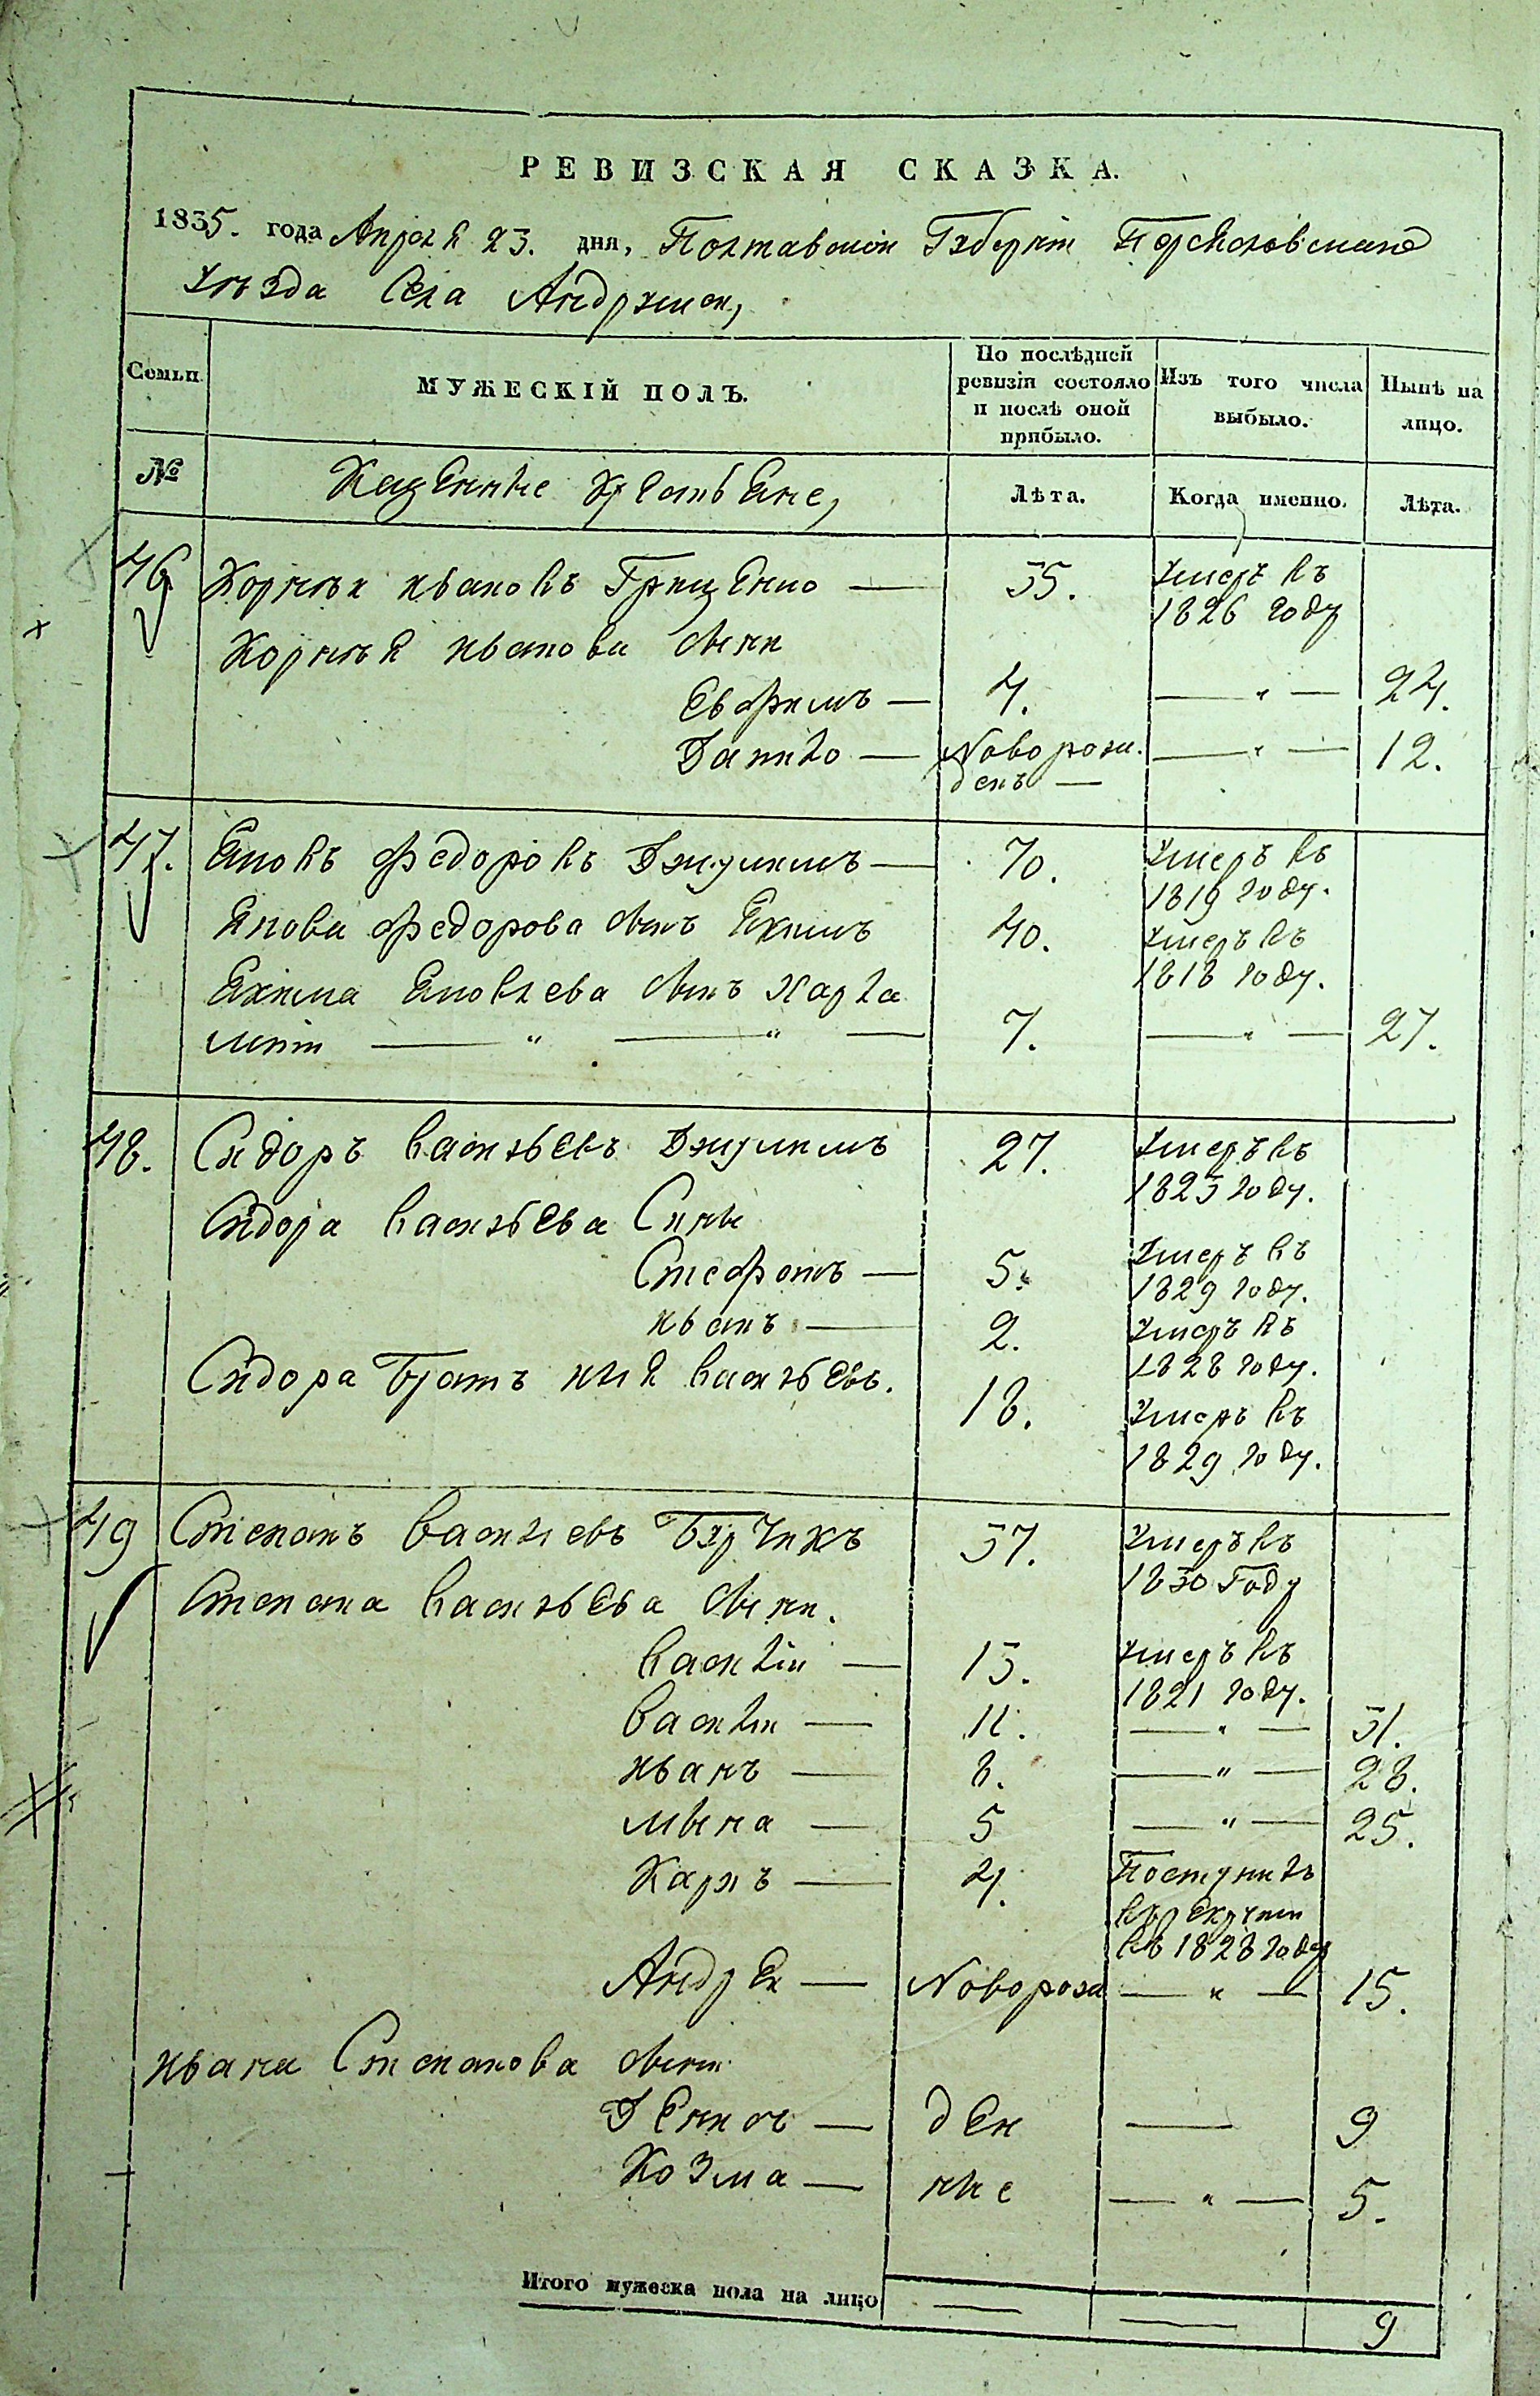 РЕВИЗСКАЯ СКАЗКА.
1835. года Апреля 23. дня, Полтавской Губернiи Переяславскаго
уѣзда Села Андрушок,
Семьи. МУЖЕСКІЙ ПОЛЪ. По послѣдней ревизіи состояло и послѣ оной прибыло. Изъ того числа выбыло. Нынѣ на лицо.
№ Казенные Крестьяне, Лѣта. Когда именно. Лѣта.
46 Корнѣй Ивановъ Грищенко — 35. Умеръ въ
1826 году
Корнѣя Иванова сыни
Евфимъ — 4. — „ — 24.
Данило — Новорож. — „ — 12.
денъ —
47. Яковъ Федоровъ — 70. Умеръ въ
1819 году.
Якова Федорова сынъ Якимъ 40. Умеръ въ
1818 году.
Якима Яковлева сынъ Харла
мпiй — „ — „ — 7. — „ — 27.
48. Сидоръ Васильевъ 27. Умеръ въ
1825 году.
Сидора Васильева Сины
Стефанъ — 5. Умеръ въ
1829 году.
Иванъ — 2. Умеръ въ
1828 году.
Сидора Братъ Илья Васильевъ. 18. Умеръ въ
1829 году.
49 Степанъ Васильевъ Бурчикъ 37. Умеръ въ
1830 Году
Степана Васильева сыни.
Василiй — 13. Умеръ въ
1821 году.
Василiй — 11. — „ — 31.
Иванъ — 8. — „ — 28.
Мына — 5 — „ — 25.
Карпъ — 4. Поступилъ
въ рекруты
въ 1828 году
Андрей — Новорож — „ — 15.
Ивана Степанова сыни
Денисъ — ден — 9
Козма — ные — „ — 5.
Итого мужеска пола на лицо — — 9